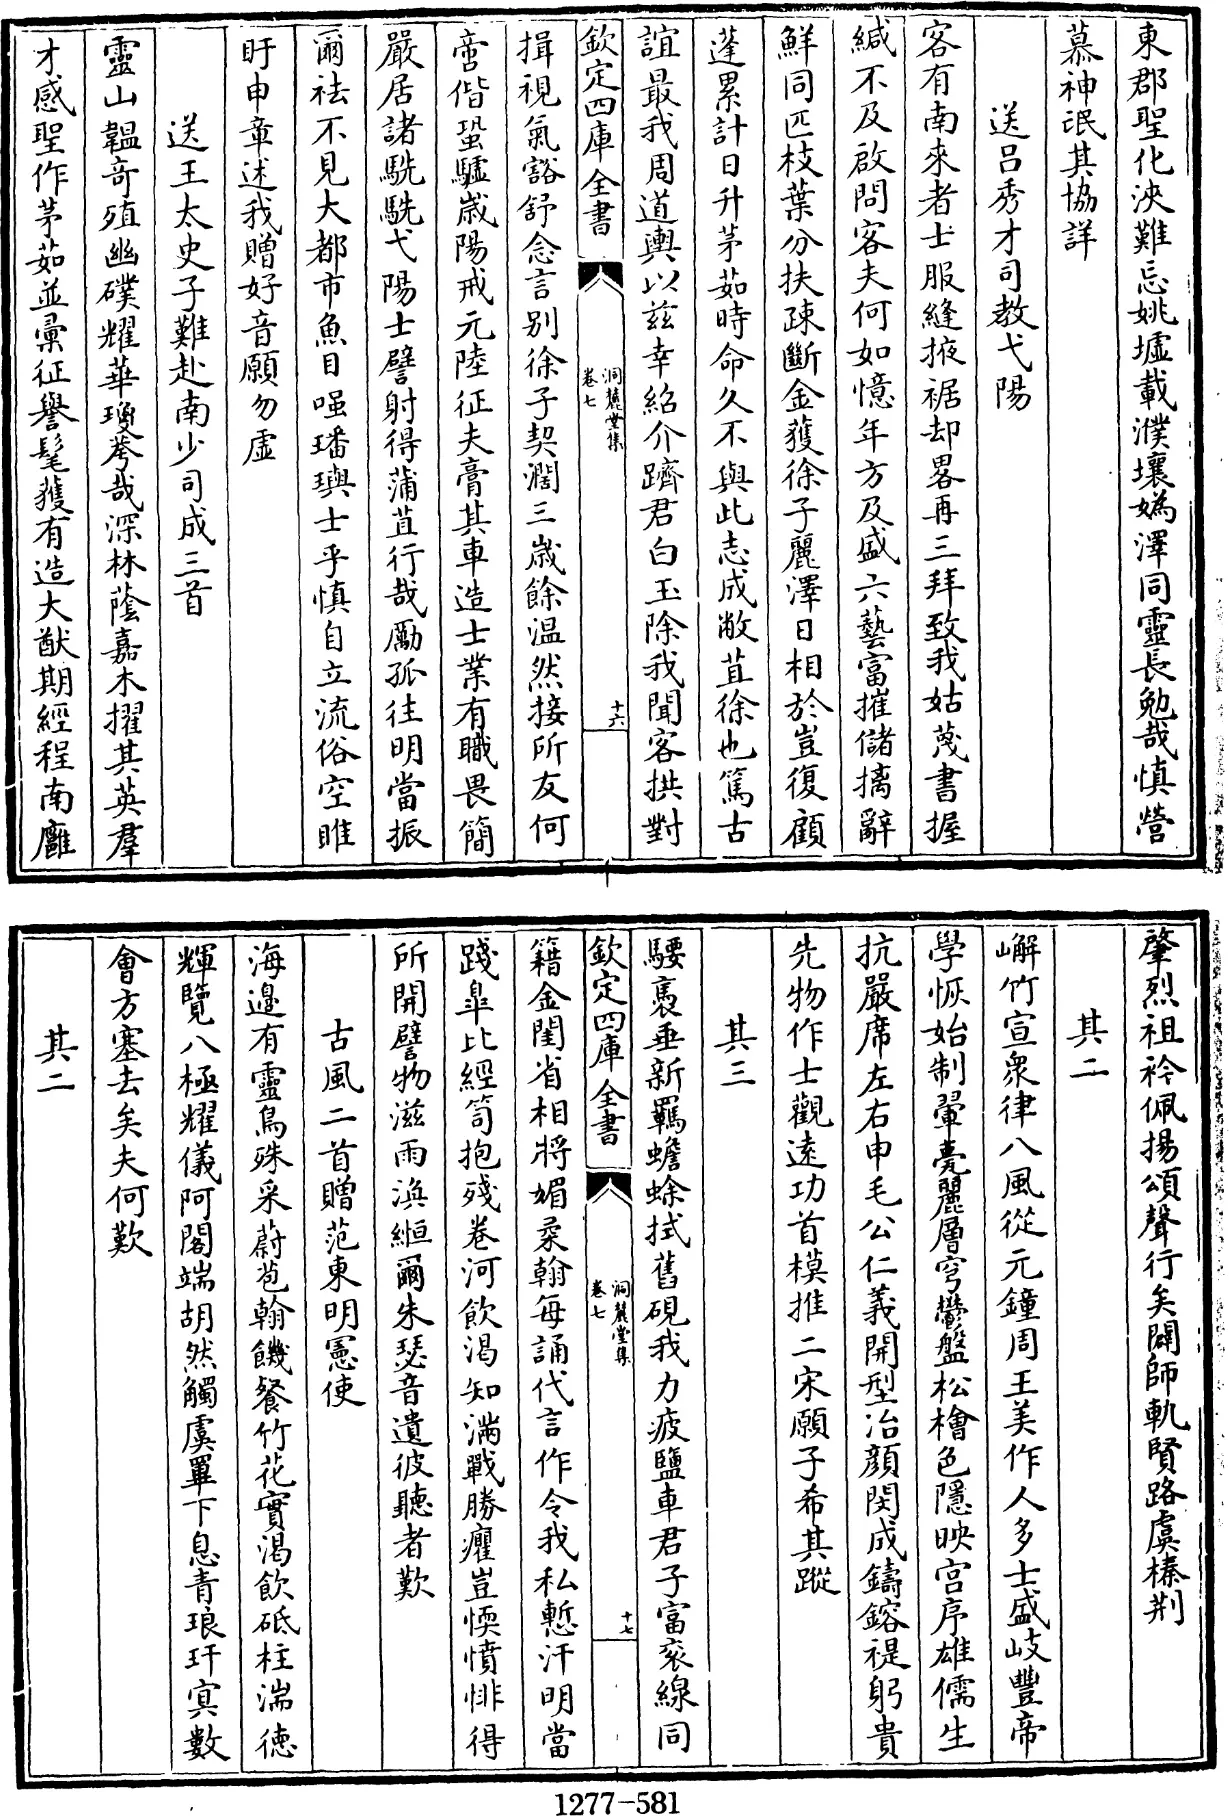 東郡聖化泱難忘姚墟載濮壤嬀澤同靈長勉哉慎營
慕神氓其協詳
送呂秀才司教弋陽
客有南來者士服縫掖裾却畧再三拜致我姑蔑書握
緘不及啟問客夫何如憶年方及盛六藝富摧儲摛辭
鮮同匹枝葉分扶疎斷金獲徐子麗澤日相於豈復顧
蓬累計日升茅茹時命久不與此志成敝苴徐也篤古
誼最我周道輿以兹幸紹介躋君白玉除我聞客拱對
欽定四庫全書
洞麓堂集
卷七
十六
揖視氣谿舒念言别徐子契濶三歲餘温然接所友何
啻偕蛩驢歲陽戒元陸征夫膏其車造士業有職畏簡
嚴居諸駪駪弋陽士譬射得蒲苴行哉勵孤往明當振
爾祛不見大都市魚目嗤璠璵士乎慎自立流俗空睢
盱申章述我贈好音願勿虚
送王太史子難赴南少司成三首
靈山韞奇殖幽礏耀華瓊莾哉深林蔭嘉木擢其英羣
才感聖作茅茹並彙征譽髦獲有造大猷期經程南雝
肇烈祖衿佩揚頌聲行矣闢師軌賢路虞榛荆
其二
嶰竹宣衆律八風從元鐘周王美作人多士盛岐豐帝
學恢始制翬甍麗層穹鬱盤松檜色隱映宫序雄儒生
抗嚴席左右申毛公仁義開型冶顔閔成鑄鎔禔躬貴
先物作士觀逺功首模推二宋願子希其蹤
其三
騕褭垂新羈蟾蜍拭舊硯我力疲鹽車君子富衮線同
欽定四庫全書
洞麓堂集
卷七
十七
籍金閨省相將媚柔翰每誦代言作令我私慙汗明當
踐臯比經笥抱殘卷河飲渴知滿戰勝癯豈愞憤悱得
所開譬物滋雨渙緪爾朱瑟音遺彼聽者歎
古風二首贈范東明憲使
海邉有靈鳥殊采蔚苞翰饑餐竹花實渴飲砥柱湍徳
輝覽八極耀儀阿閣端胡然觸虞羅下息青琅玕寘數
會方塞去矣夫何歎
其二
1277-581